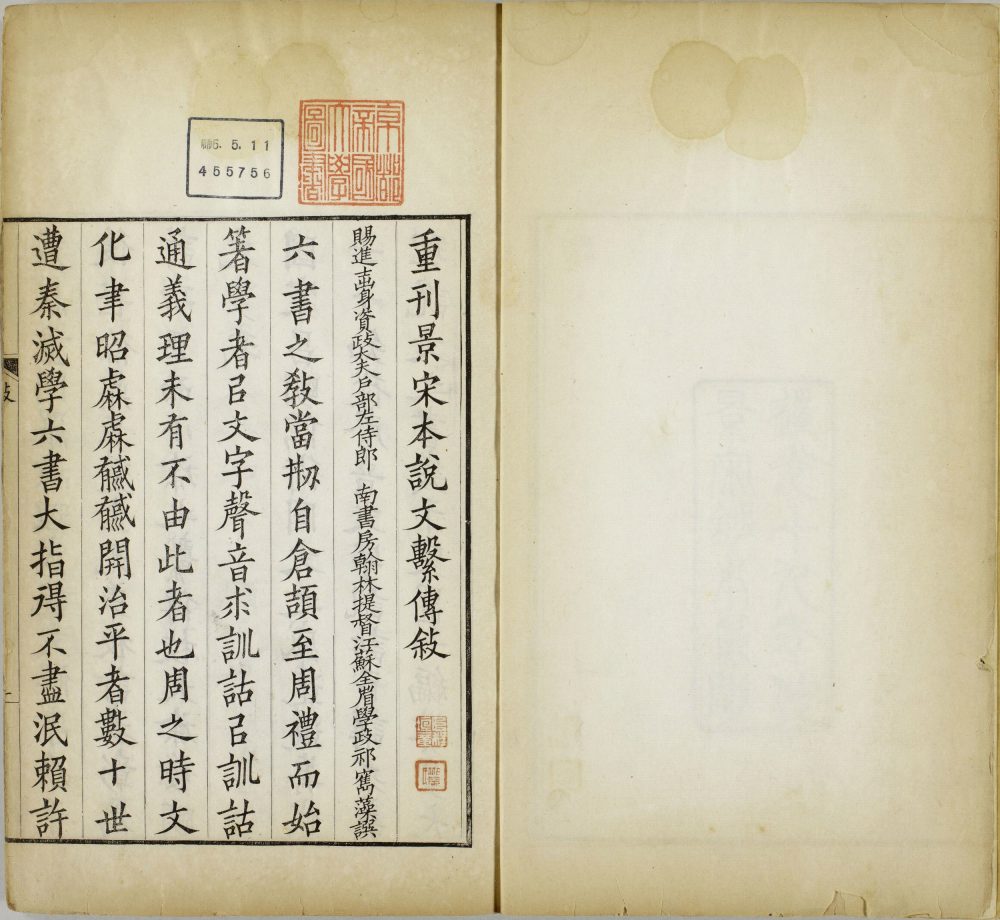 重刊景宋本說文繫傳敍
賜進出身資政大夫戶部左侍郎 南書房翰林提督江蘇全省學政祁寯藻譔
六書之敎當剏自倉頡至周禮而始
箸學者㠯文字聲音求訓詁㠯訓詁
通義理未有不由此者也周之時文
化聿昭麻麻䎉䎉開治平者數十世
遭秦滅學六書大指得不盡泯賴許
京都帝國大學圖書
5.11
455756
敍
一